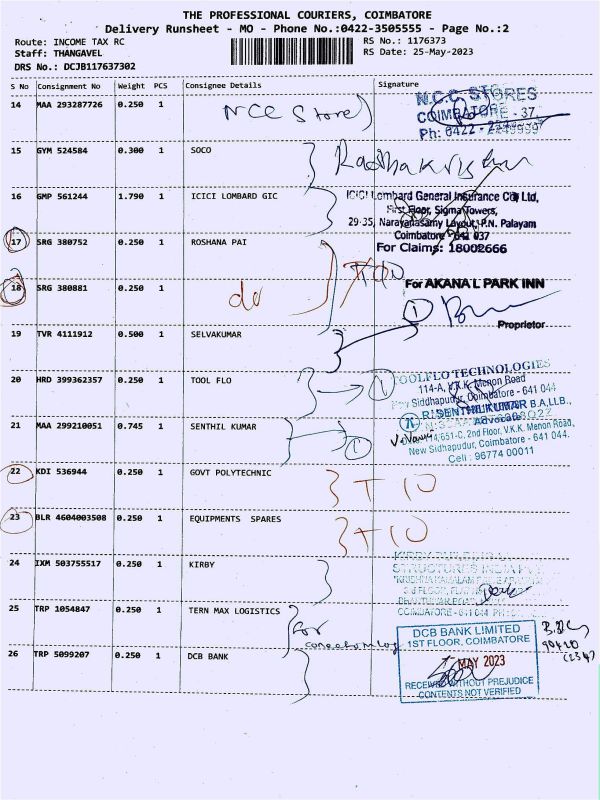 THE PROFESSIONAL COURIERS, COIMBATORE
Delivery Runsheet - MO - Phone No.:0422-3505555 - Page No.:2
Route: INCOME TAX RC RS No.: 1176373
Staff: THANGAVEL RS Date: 25-May-2023
DRS No.: DCJB117637302
S No Consignment No Weight PCS Consignee Details Signature
14 MAA 293287726 0.250 1 NCC Store
N.C.C. STORES
COIMBATORE - 37.
Ph: 0422 -
15 GYM 524584 0.300 1 SOCO Radhakrishnan
16 GMP 561244 1.790 1 ICICI LOMBARD GIC
ICICI Lombard General Insurance Co Ltd,
First Floor, Sigma Towers,
29-35, Narayanasamy Layout, P.N. Palayam
Coimbatore - 641 037
For Claims: 18002666
17 SRG 380752 0.250 1 ROSHANA PAI
18 SRG 380881 0.250 1 do
For AKANA L PARK INN
1
Proprietor
19 TVR 4111912 0.500 1 SELVAKUMAR
20 HRD 399362357 0.250 1 TOOL FLO
TOOLFLO TECHNOLOGIES
114-A, V.K.K. Menon Road
New Siddhapudur, Coimbatore - 641 044
R. SENTHILKUMAR B.A,LLB.,
Advocate
21 MAA 299210051 0.745 1 SENTHIL KUMAR 1
114,651-C, 2nd Floor, V.K.K. Menon Road,
New Sidhapudur, Coimbatore - 641 044.
Cell : 96774 00011
22 KDI 536944 0.250 1 GOVT POLYTECHNIC
23 BLR 4604003508 0.250 1 EQUIPMENTS SPARES
24 IXM 503755517 0.250 1 KIRBY
KIRBY BUILDING
STRUCTURES INDIA
25 TRP 1054847 0.250 1 TERN MAX LOGISTICS For
26 TRP 5099207 0.250 1 DCB BANK
DCB BANK LIMITED
1ST FLOOR, COIMBATORE
MAY 2023
RECEIVED WITHOUT PREJUDICE
CONTENTS NOT VERIFIED